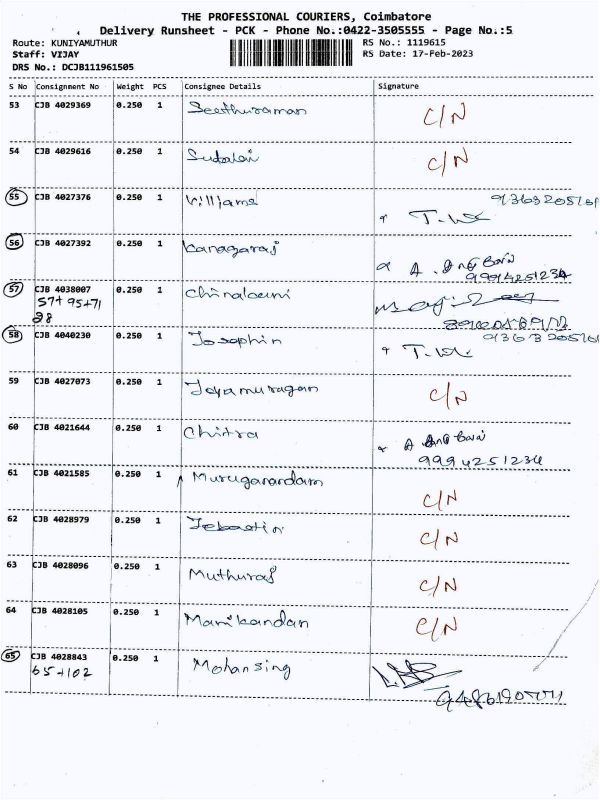 THE PROFESSIONAL COURIERS, Coimbatore
Delivery Runsheet - PCK - Phone No.:0422-3505555 - Page No.:5
Route: KUNIYAMUTHUR RS No.: 1119615
Staff: VIJAY RS Date: 17-Feb-2023
DRS No.: DCJB111961505
S No Consignment No Weight PCS Consignee Details Signature
53 CJB 4029369 0.250 1 Seethuraman C/N
54 CJB 4029616 0.250 1 Sudalai C/N
55 CJB 4027376 0.250 1 Villiams
56 CJB 4027392 0.250 1 Kanagaraj A.
9994251234
57 CJB 4038007 0.250 1
57+95+71
28
58 CJB 4040230 0.250 1 Josephin
59 CJB 4027073 0.250 1 Jeyamurugan C/N
60 CJB 4021644 0.250 1 Chitra A
9994251234
61 CJB 4021585 0.250 1 Muruganandam C/N
62 CJB 4028979 0.250 1 Jebastin C/N
63 CJB 4028096 0.250 1 Muthuraj C/N
64 CJB 4028105 0.250 1 Manikandan C/N
65 CJB 4028843 0.250 1 Mohansing
65+102